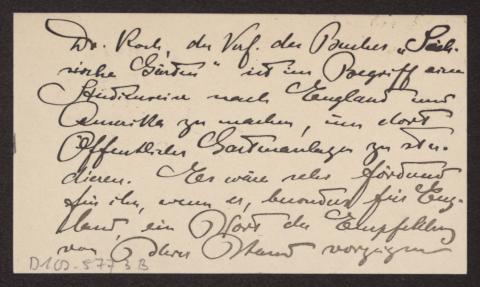 Dr. Koch, der Verf. des Buches „Säch-
sische Gärten“ ist im Begriff eine
Studienreise nach England und
Amerika zu machen, um dort
Öffentliche Gartenanlagen zu stu-
dieren. Es wäre sehr fördernd
für ihn, wenn er, besonders für Eng-
land, ein Wort der Empfehlung
von Ihrer Hand vorzeigen
D100-5773B